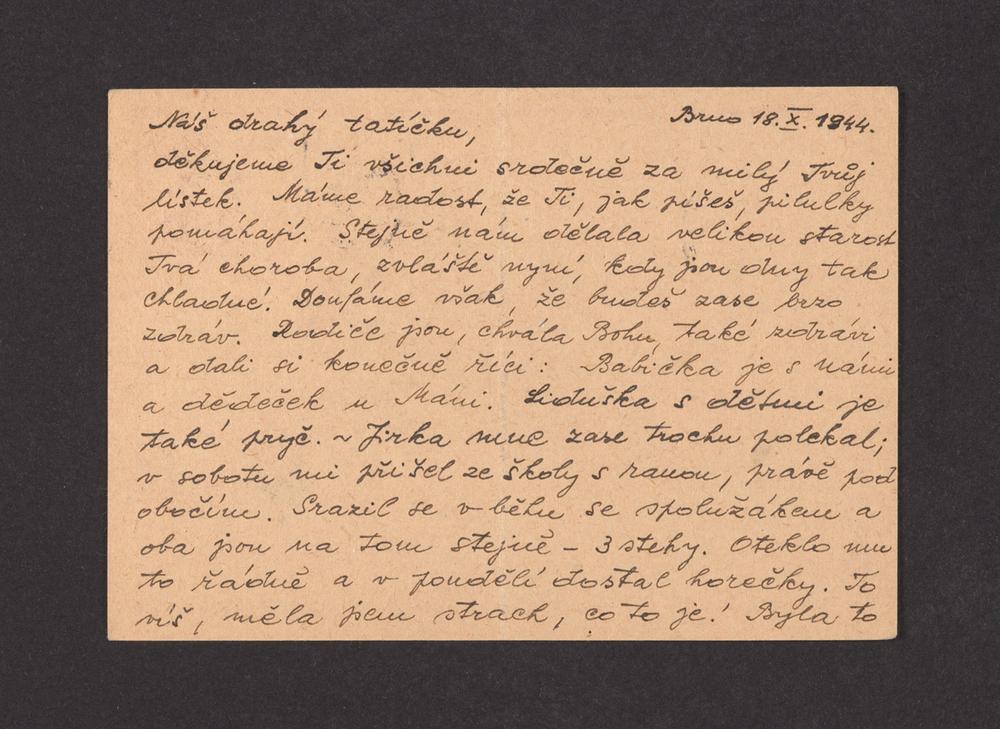 Brno 18.X.1944.
Náš drahý tatíčku,
děkujeme Ti všichni srdečně za milý Tvůj
lístek. Máme radost, že Ti, jak píšeš, pilulky
pomáhají. Stejně nám dělala velikou starost
Tvá choroba, zvláště nyní, kdy jsou dny tak
chladné. Doufáme však, že budeš zase brzo
zdráv. Rodiče jsou, chvála Bohu, také zdrávi
a dali si konečně říci: Babička je s námi
a dědeček u Máni. Liduška s dětmi je
také pryč. ~ Jirka mne zase trochu polekal;
v sobotu mi přišel ze školy s ranou, právě pod
obočím. Srazil se v běhu se spolužákem a
oba jsou na tom stejně – 3 stehy. Oteklo mu
to řádně a v pondělí dostal horečky. To
víš, měla jsem strach, co to je! Byla to